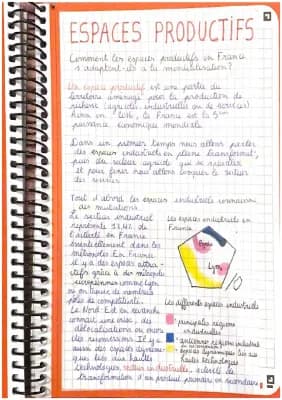 ESPACES PRODUCTIFS
Comment les espaces productifs en France
s'adaptent-ils à la mondialisation?
Un espace productif est une partie du
territoire aménagé pour la production de
richesse (agricoles, industrielles ou de services)
la France est la 5ème
puissance économique mondiale.
Dans un premier temps nous allons parler
des espaces industriels en pleine transformation,
puis du secteur agricole qui se
et pour finir nous allons le secteur
des services
Tout d'abord les espaces industriels connaissent
des mutations.
Le secteur industriel
représente 13,4% de
l'activité en France
essentiellement dans les
métropoles. En France
il y a des espaces attrac-
tifs grâce à des métropoles
européennes comme Lyon
ou
pôles de compétitivité.
Le Nord-Est en revanche
connait une crise, des
délocalisations ou encore
des reconversions. Il y a
aussi des espaces dynami-
ques liés aux hautes
technologies, secteur industrielle, activité de
transformation d'un produit primaire en secondaire
Les espaces industriels en
France
Paris
Lyon
Les différents espaces industriels
principales régions
industrielles
anciennes régions industriel
espaces dynamiques liés aux
hautes technologies